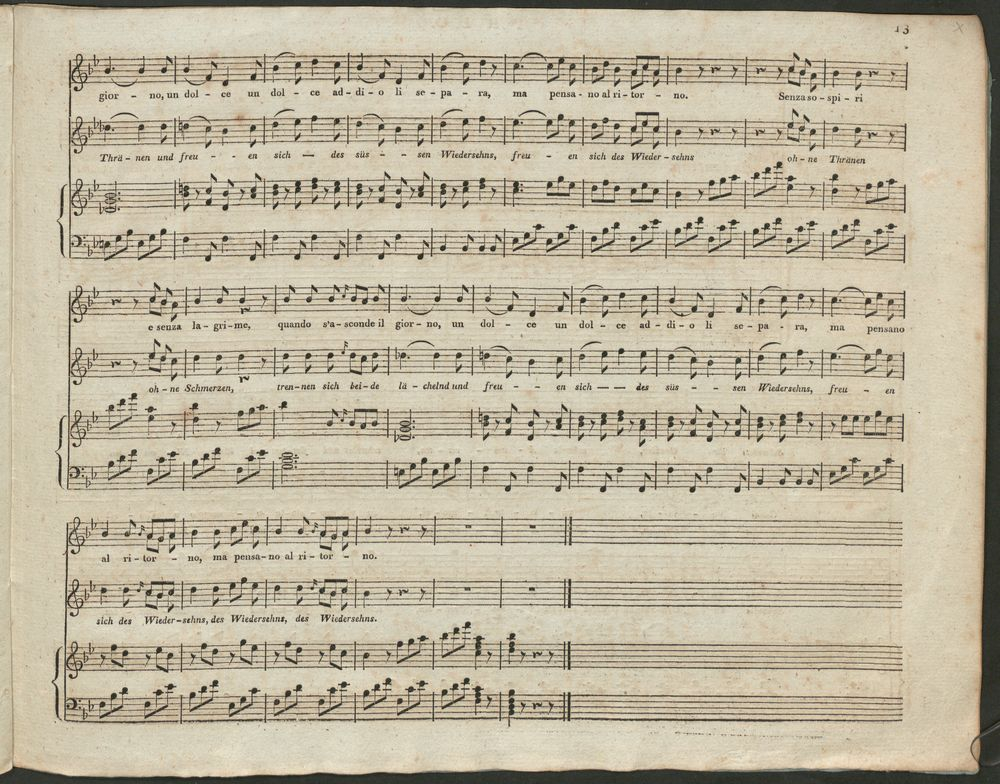 13
gior - no, un dol - ce un dol - ce ad - di - o li se - pa - ra, ma pensa - no al ri - tor - no. Senza so - spi - ri
Thrä - nen und freu - - en sich — des süs - - sen Wiedersehns, freu - en sich des Wieder - sehns oh - ne Thränen
e senza la - gri - me, quando s'a - sconde il gior - no, un dol - ce un dol - ce ad - di - o li se - pa - ra, ma pensano
oh - ne Schmerzen, tren - nen sich bei - de lä - chelnd und freu - - en sich — — des süs - - sen Wiedersehns, freu en
al ri - tor - no, ma pensa - no al ri - tor - no.
sich des Wieder - sehns, des Wiedersehns, des Wiedersehns.